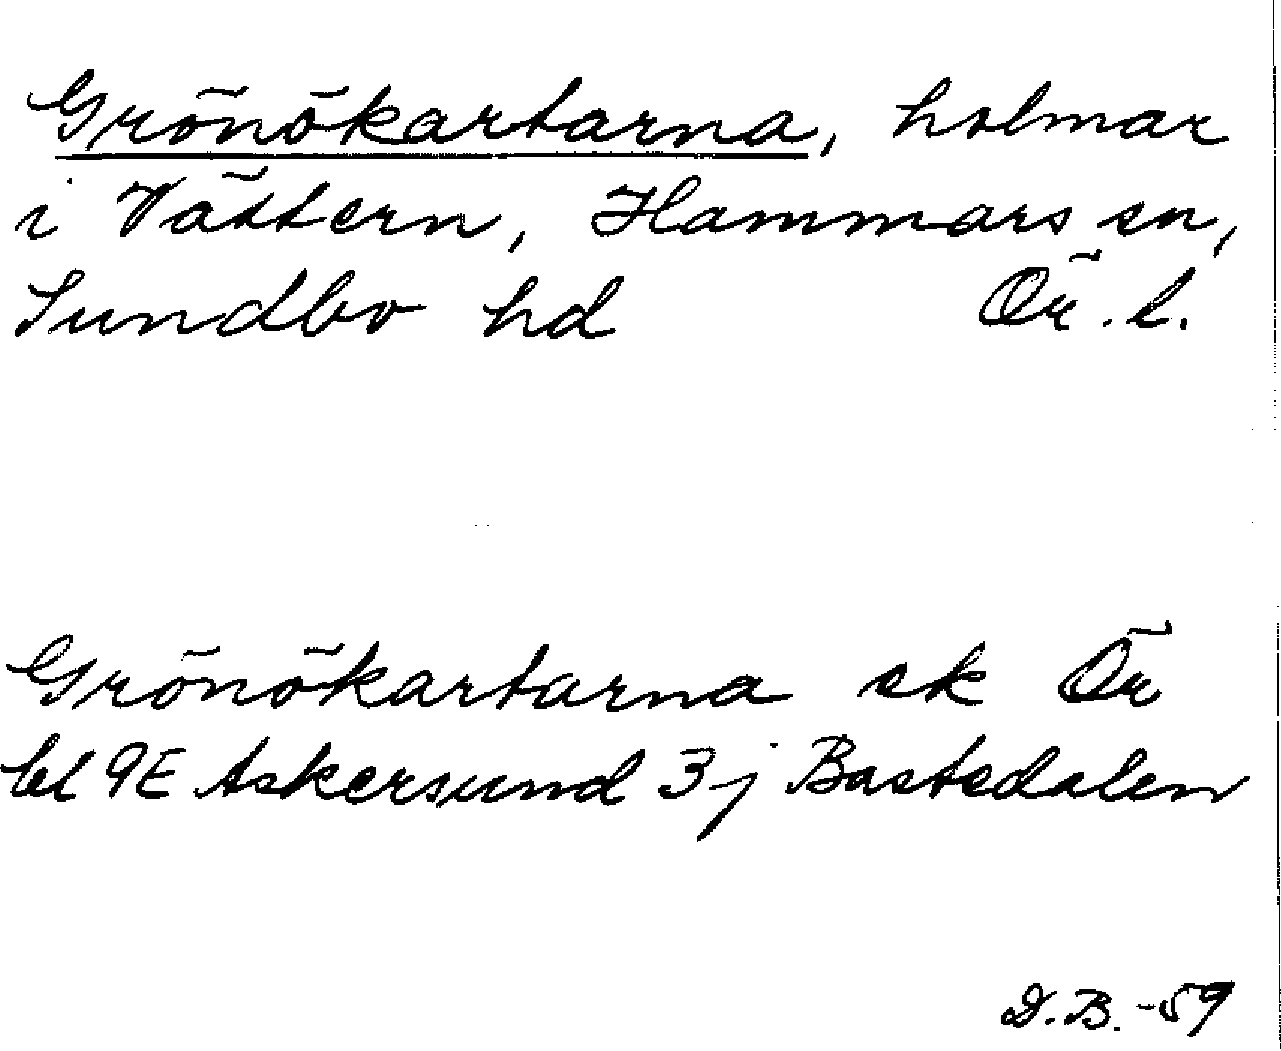 Grönökartarna, holmar
i Vättern, Hammars sn,
Sundbo hd Ör. l.
Grönökartarna ek Ör
bl 9E Askersund 3j Bastedalen
D.B. -59